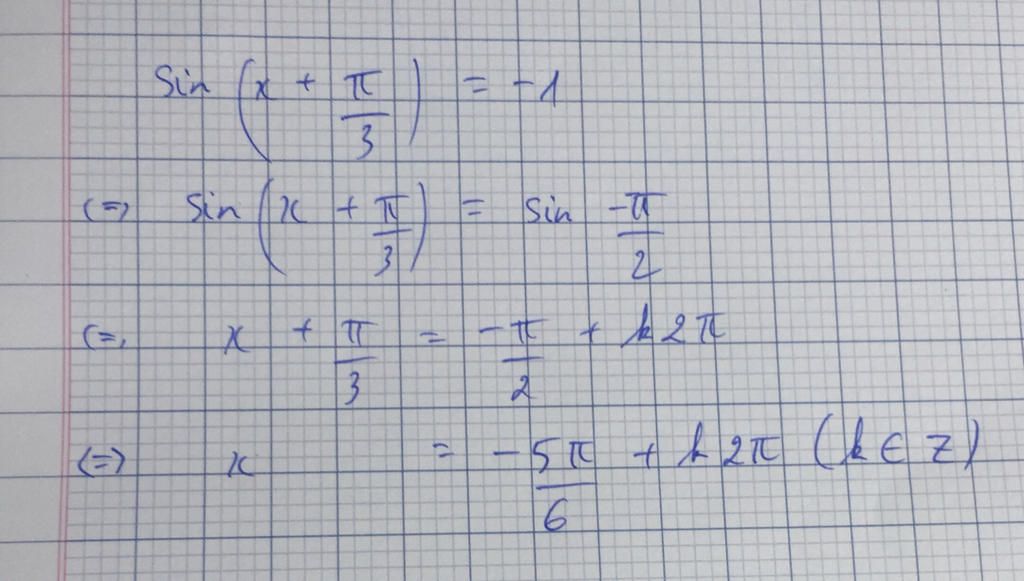 sin (x + π/3) = -1
(=) sin (x + π/3) = sin -π/2
(=, x + π/3 = -π/2 + k2π
(=) x = -5π/6 + k2π (k ∈ Z)